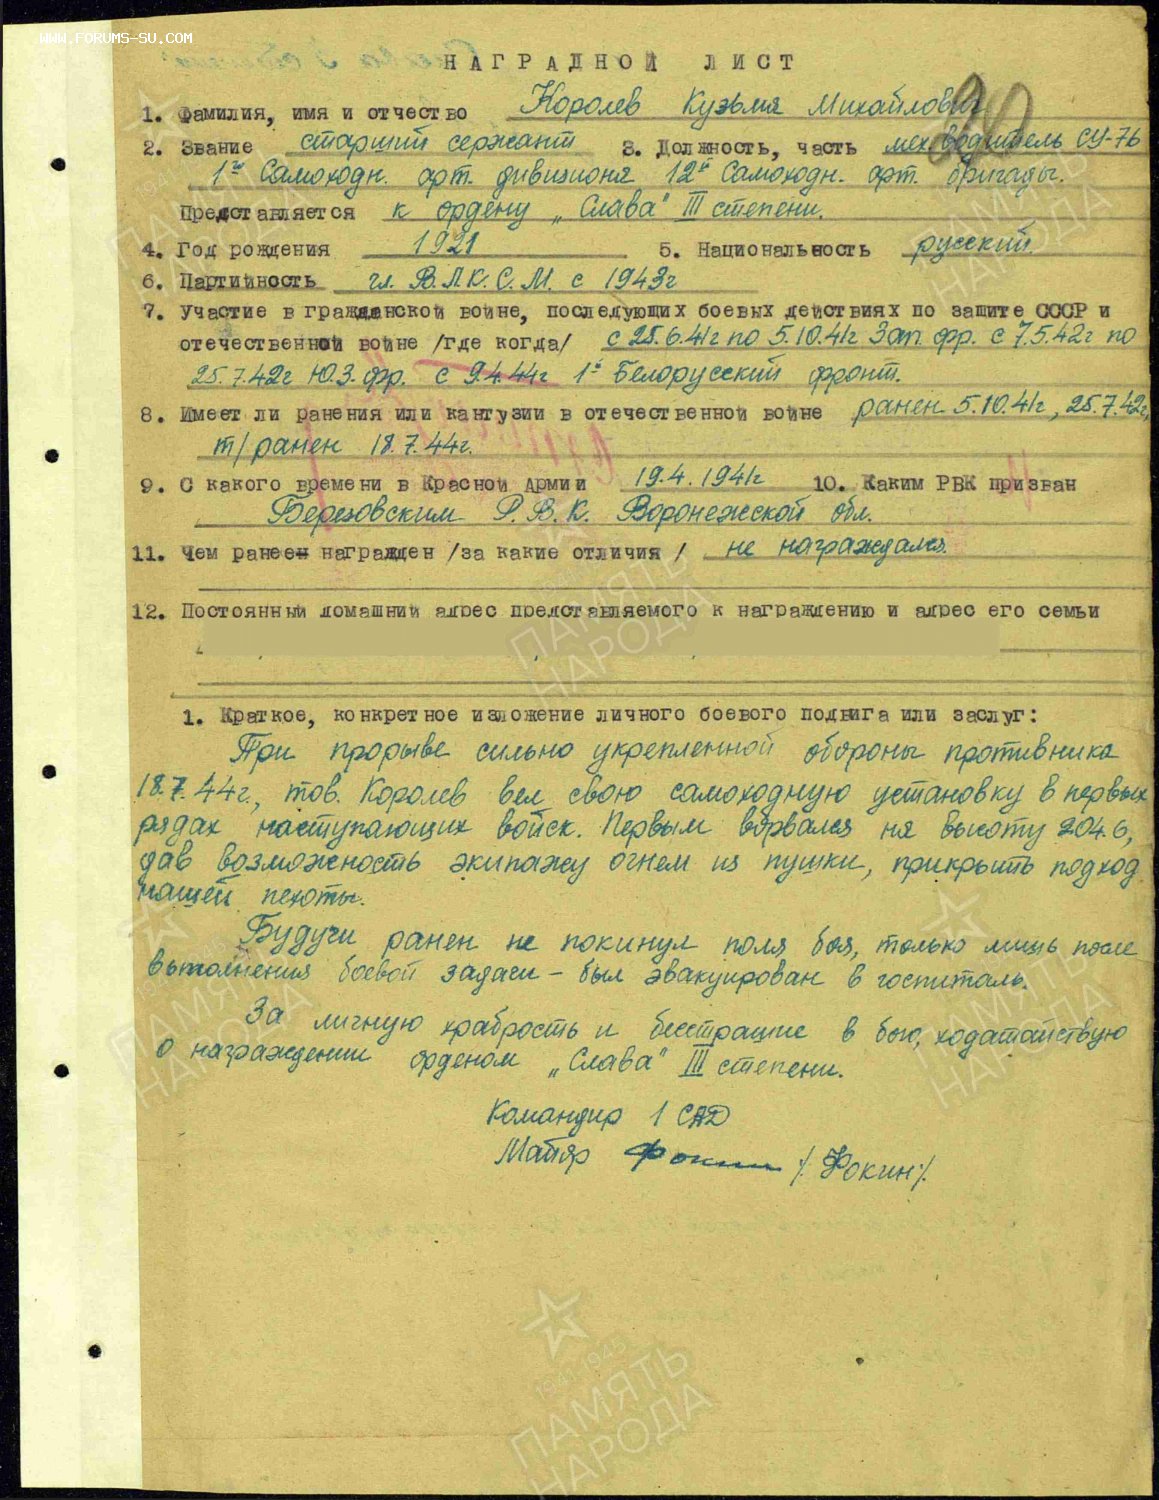 WWW.FORUMS-SU.COM
НАГРАДНОЙ ЛИСТ
1. Фамилия, имя и отчество Королев Кузьма Михайлович
2. Звание старший сержант 3. Должность, часть мех. водитель СУ-76
1го Самоходн. арт. дивизиона 12й Самоходн. арт. бригады.
Представляется к ордену „Слава" III степени.
4. Год рождения 1921 5. Национальность русский.
6. Партийность чл. В.Л.К.С.М. с 1943г
7. Участие в гражданской войне, последующих боевых действиях по защите СССР и
отечественной войне /где когда/ с 25.6.41г по 5.10.41г Зап. фр. с 7.5.42г по
25.7.42г Ю.З. фр. с 9.4.44г 1й Белорусский фронт.
8. Имеет ли ранения или кантузии в отечественной войне ранен 5.10.41г, 25.7.42г,
т/ранен 18.7.44г.
9. С какого времени в Красной Армии 19.4.1941г 10. Каким РВК призван
Березовским Р.В.К. Воронежской обл.
11. Чем ранеен награжден /за какие отличия / не награждался.
12. Постоянный домашний адрес представляемого к награждению и адрес его семьи
1. Краткое, конкретное изложение личного боевого подвига или заслуг:
При прорыве сильно укрепленной обороны противника
18.7.44г., тов. Королев вел свою самоходную установку в первых
рядах наступающих войск. Первым ворвался на высоту 204.6,
дав возможность экипажу огнем из пушки, прикрыть подход
нашей пехоты.
Будучи ранен не покинул поля боя, только лишь после
выполнения боевой задачи – был эвакуирован в госпиталь.
За личную храбрость и бесстрашие в бою, ходатайствую
о награждении орденом „Слава" III степени.
Командир 1 САД
Майор Фокин /. Фокин ./
1941-1945
ПАМЯТЬ
НАРОДА